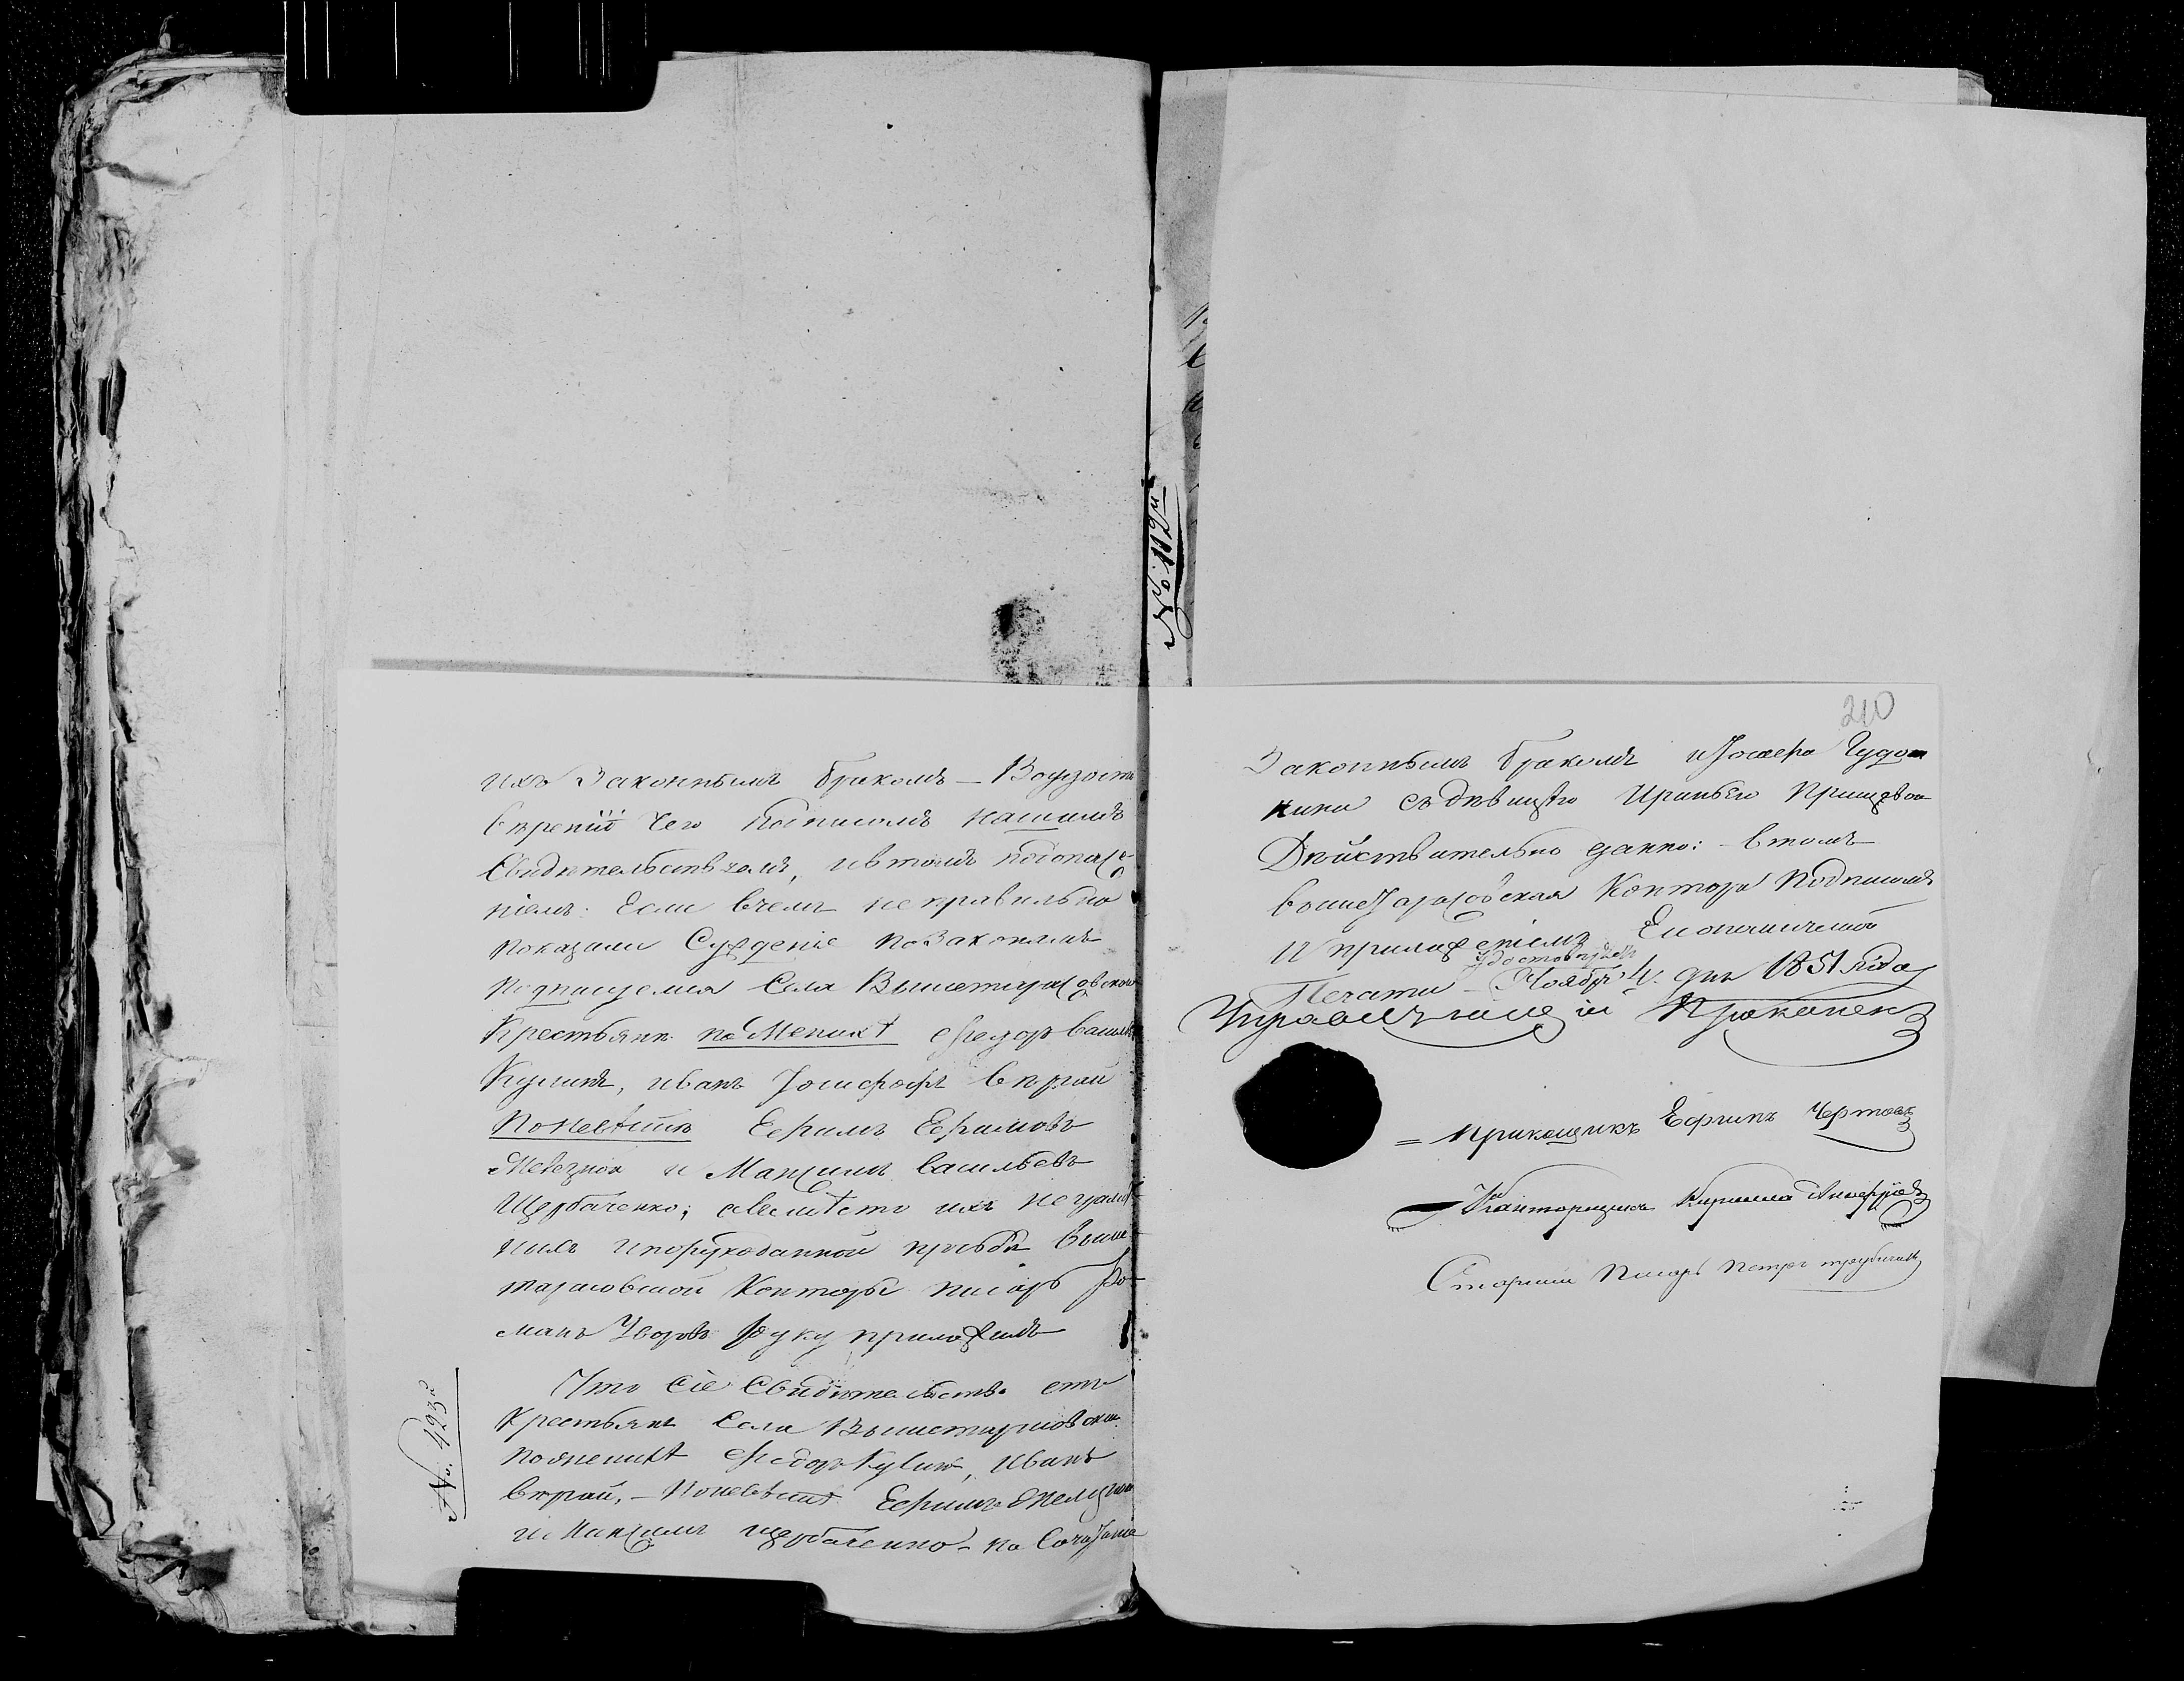 ихъ Законнымъ бракомъ — Воудосто
вѣрении чего Подписомъ нашимъ
Свидѣтельствуемъ, ивтомъ подопасе
ніемъ: Если вчемъ неправильно
показали Сужденіе позаконамъ
подписуемся Села Вышетарасовской
Крестьяне по Женихѣ Федоръ Василь
Кулишъ, иванъ Іосифофъ вкрай
Поневѣсте Ефимъ Ефимовъ
и Максимъ Васильевъ
Щербаченко; авместо ихъ неграмот
ныхъ ипорукоданной прозбѣ выше
тарасовской Конторы писарь Ро
манъ Уворовъ Руку приложилъ
№. 423й
Что Сіе Свидѣтельство отъ
Крестьянъ Села Вышетарасовски
поженихѣ Федоръ Кулишъ, Иванъ
вкрай, — Поневѣстѣ Ефимъ
и Максимъ щербаченко — на Сочетание
№. 112й
210
Законнымъ бракомъ иІосифа Чудо
кина съдѣвицею Ириною Прищевою
Дѣйствительно данно: — втомъ
вышеТарасовская Контора Подписомъ
И приложеніемъ Економической
Печати — удостовѣряетъ Ноября 4. дня 1851 года
Управляющій Прокопенко
= Прикащикъ Ефимъ Чертовъ
Канторщикъ Кирилла
Старший Писарь Петръ